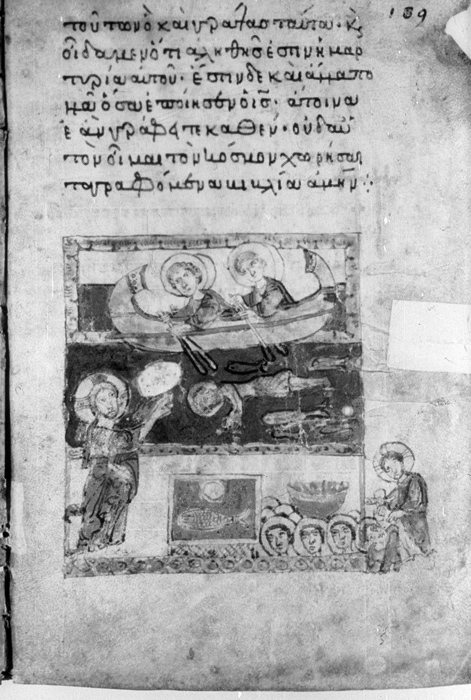 139
τούτων ὁ καὶ γράψας ταῦτα· κς
οἴδαμεν ὅτι ἀληθής ἐστιν ἡ μαρ
τυρία αὐτοῦ· ἔστιν δὲ καὶ ἄλλα πο
λλὰ ὅσα ἐποίησεν ὁ ις· ἅτινα
ἐὰν γράφητε καθέν· οὐδὲ αὐ
τὸν οἶμαι τὸν κόσμον χωρῆσαι
τὰ γραφόμενα βιβλία ἀμήν: